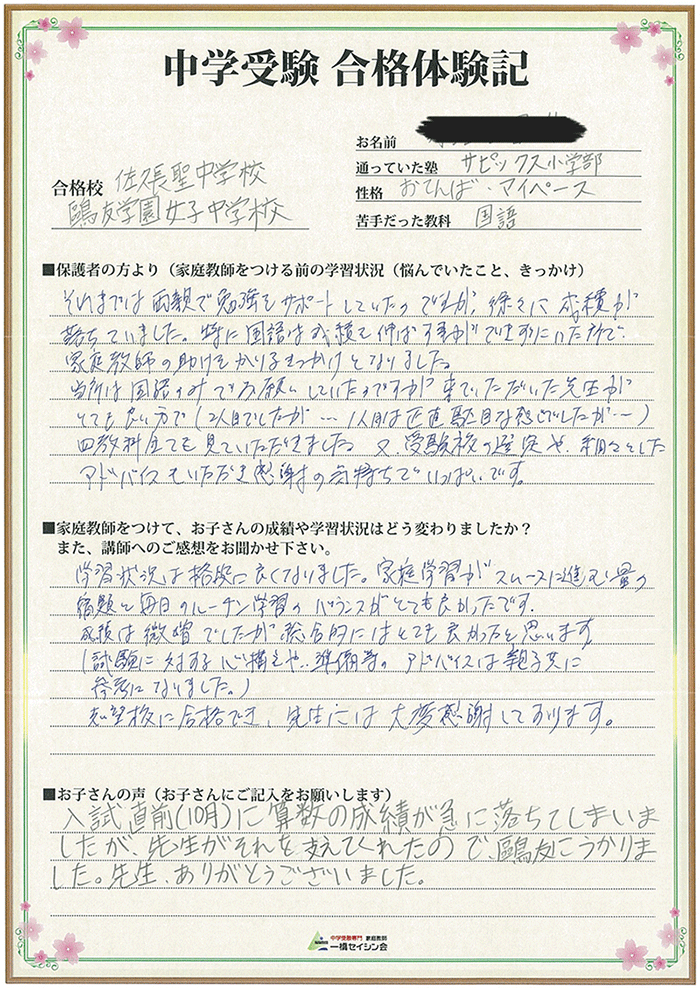 中学受験 合格体験記
お名前
通っていた塾 サピックス小学部
性格 おてんば・マイペース
苦手だった教科 国語
合格校 佐久長聖中学校
鷗友学園女子中学校
■保護者の方より（家庭教師をつける前の学習状況（悩んでいたこと、きっかけ）
それまでは両親で勉強をサポートしていたのですが、徐々に成績が
落ちていました。特に国語は成績を伸ばす事ができずにいた所で、
家庭教師の助けをかりるきっかけとなりました。
当所は国語のみでお願いしていたのですが 来ていただいた先生が
とても良い方で（2人目でしたが … 1人目は正直駄目な感じでしたが…）
四教科全てを見ていただきました 又、受験校の選定や、
アドバイスもいただき感謝の気持ちでいっぱいです。
■家庭教師をつけて、お子さんの成績や学習状況はどう変わりましたか？
また、講師へのご感想をお聞かせ下さい。
学習状況は格段に良くなりました。家庭学習がスムースに進む量の
宿題と毎日のルーチン学習のバランスがとても良かったです。
成績は微増でしたが総合的にはとても良かったと思います
（試験に対する心構えや、準備等のアドバイスは親子共に
参考になりました。）
志望校に合格でき、先生には大変感謝しております。
■お子さんの声（お子さんにご記入をお願いします）
入試直前(10月)に算数の成績が急に落ちてしまいま
したが、先生がそれを支えてくれたので、鷗友にうかりま
した。先生、ありがとうございました。
中学受験専門 家庭教師
一橋セイシン会